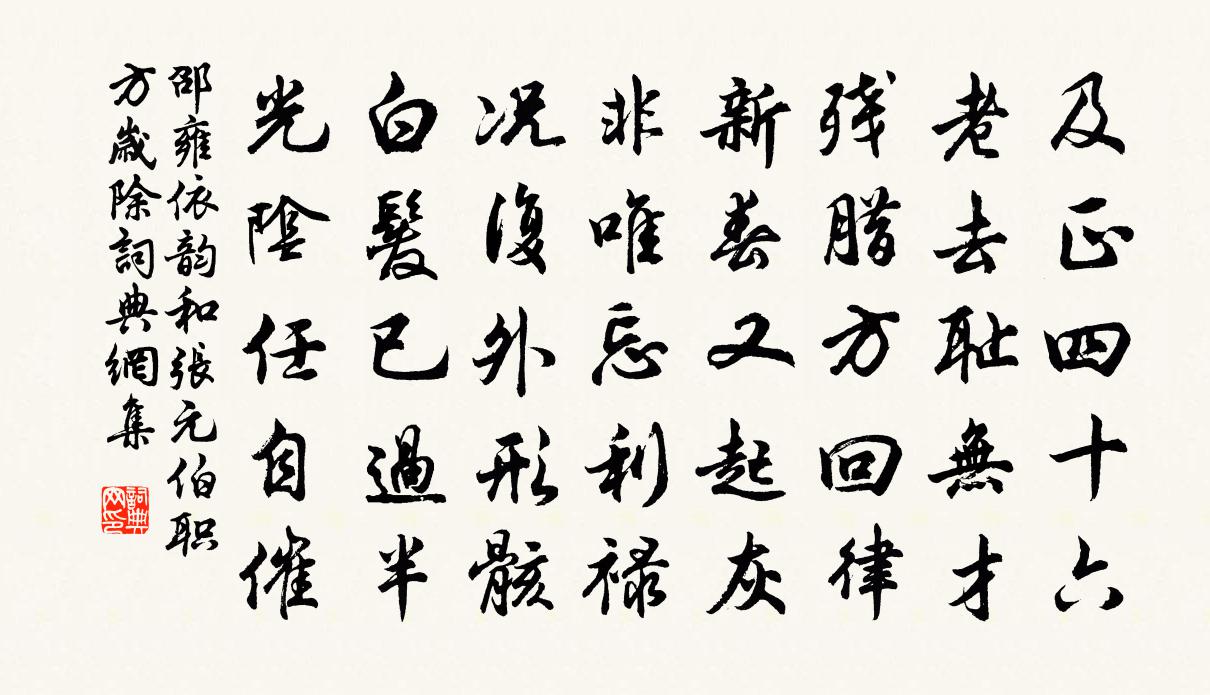 及正四十六
老去耻無才
残腊方回律
新春又起灰
非唯忘利禄
况復外形骸
白髮已過半
光陰任自催
邵雍依韵和張元伯职
方歲除詞典網集
詞典
网印